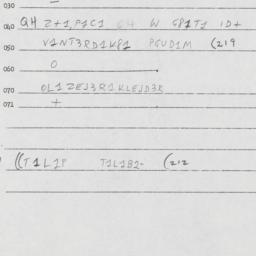 030
040 QH Z+1,P1C1 W GP1T1 1D+
050 V1NT3RD1KP1 PGUD1M (219
060 O
070 OL1ZEJ3R1KLEJD3R
071 +
((T1L1P T1L1B2- (212